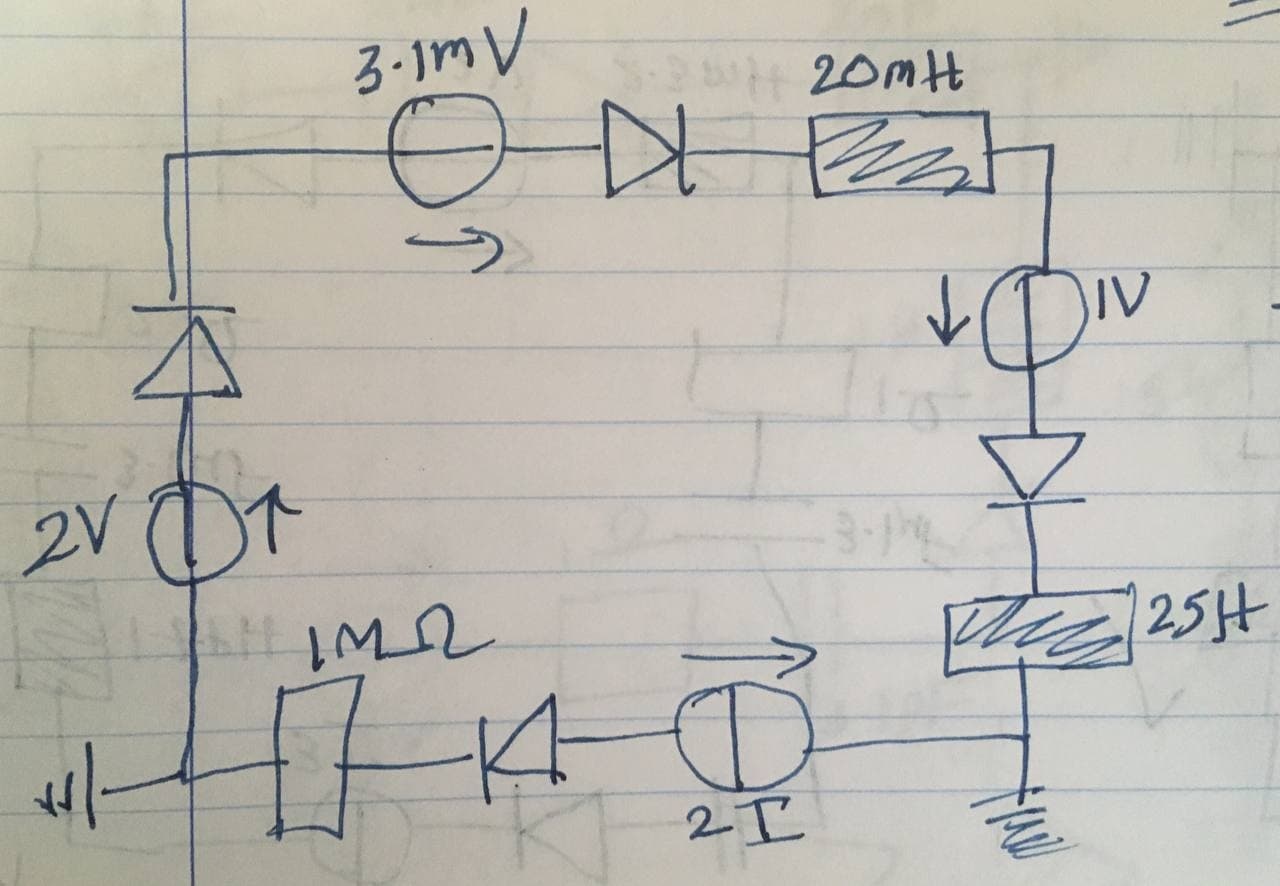 3.1mV
20mH
1V
2V
25H
1MΩ
2I